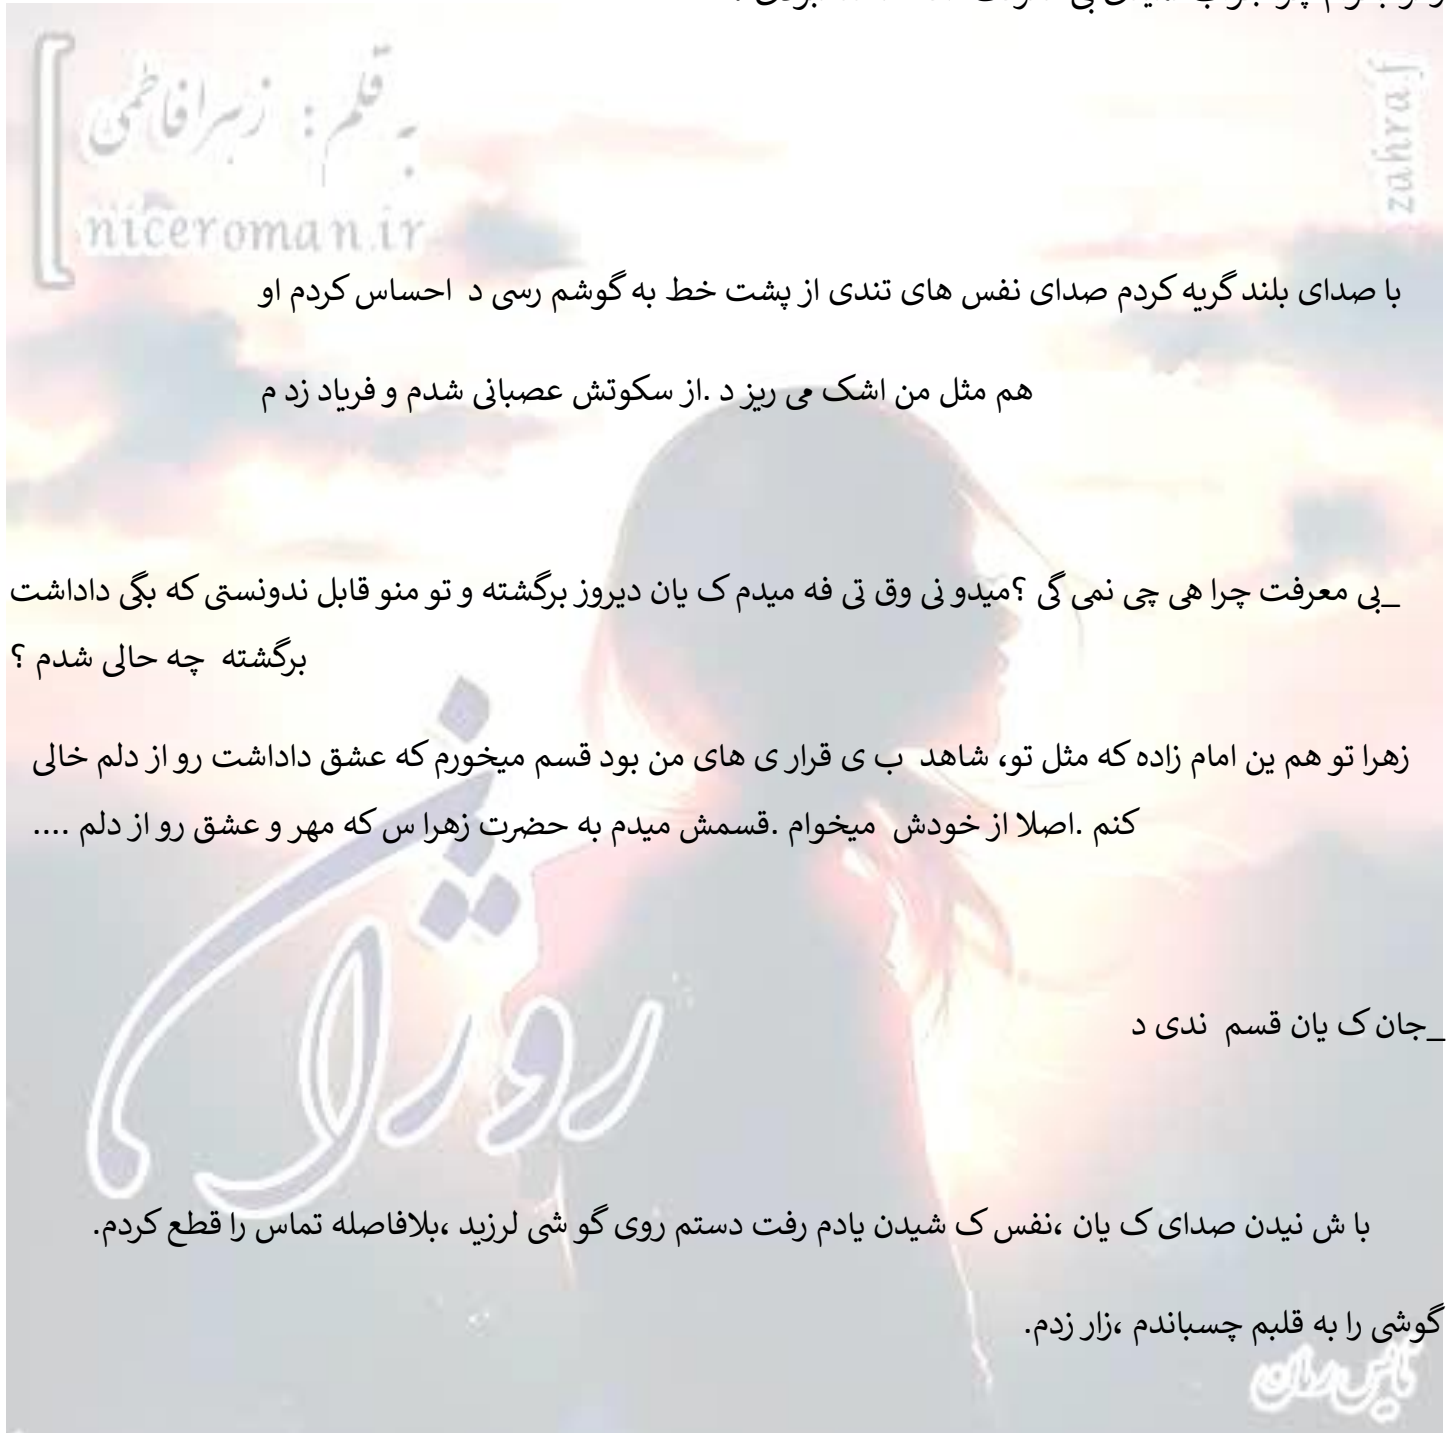 به قلم : زهرا فاطمی
niceroman.ir
zahra.f
با صدای بلند گریه کردم صدای نفس های تندی از پشت خط به گوشم رسی د احساس کردم او
هم مثل من اشک می ریز د .از سکوتش عصبانی شدم و فریاد زد م
_بی معرفت چرا هی چی نمی گی ؟میدو نی وق تی فه میدم ک یان دیروز برگشته و تو منو قابل ندونستی که بگی داداشت
برگشته چه حالی شدم ؟
زهرا تو هم ین امام زاده که مثل تو، شاهد ب ی قرار ی های من بود قسم میخورم که عشق داداشت رو از دلم خالی
کنم .اصلا از خودش میخوام .قسمش میدم به حضرت زهرا س که مهر و عشق رو از دلم ....
_جان ک یان قسم ندی د
روژان
با ش نیدن صدای ک یان ،نفس ک شیدن یادم رفت دستم روی گو شی لرزید ،بلافاصله تماس را قطع کردم.
گوشی را به قلبم چسباندم ،زار زدم.
نایس رمان